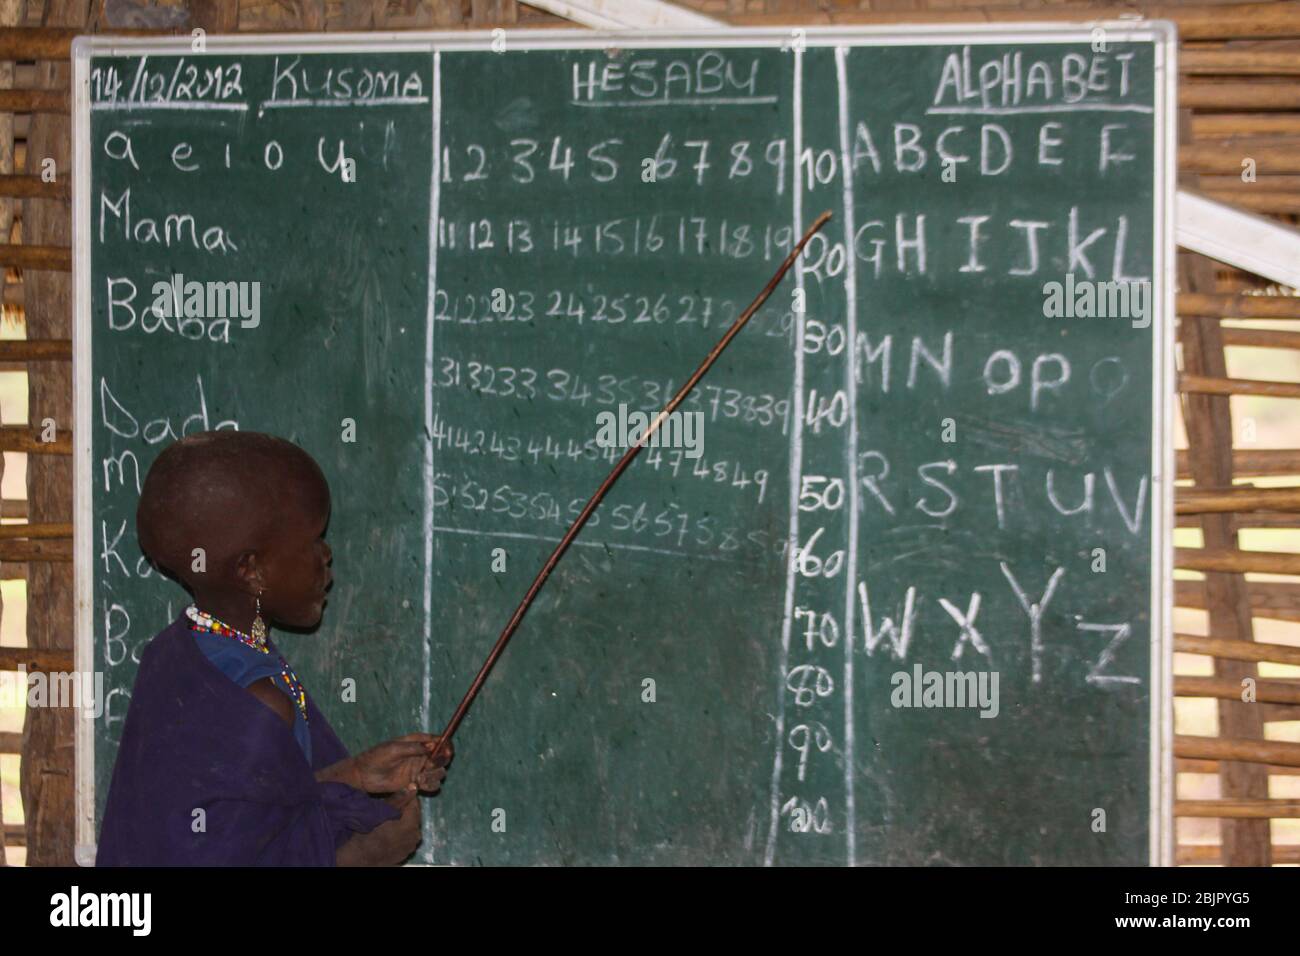 14/12/2012 KUSOMA
a e i o u
Mama
Baba
Dada
HESABU
1 2 3 4 5 6 7 8 9 10
11 12 13 14 15 16 17 18 19 20
21 22 23 24 25 26 27 28 29 30
31 32 33 34 35 36 37 38 39 40
41 42 43 44 45 46 47 48 49 50
51 52 53 54 55 56 57 58 59 60
70
80
90
100
ALPHABET
A B C D E F
G H I J K L
M N O P Q
R S T U V
W X Y Z
alamy
Image ID: 2BJPYG5
www.alamy.com